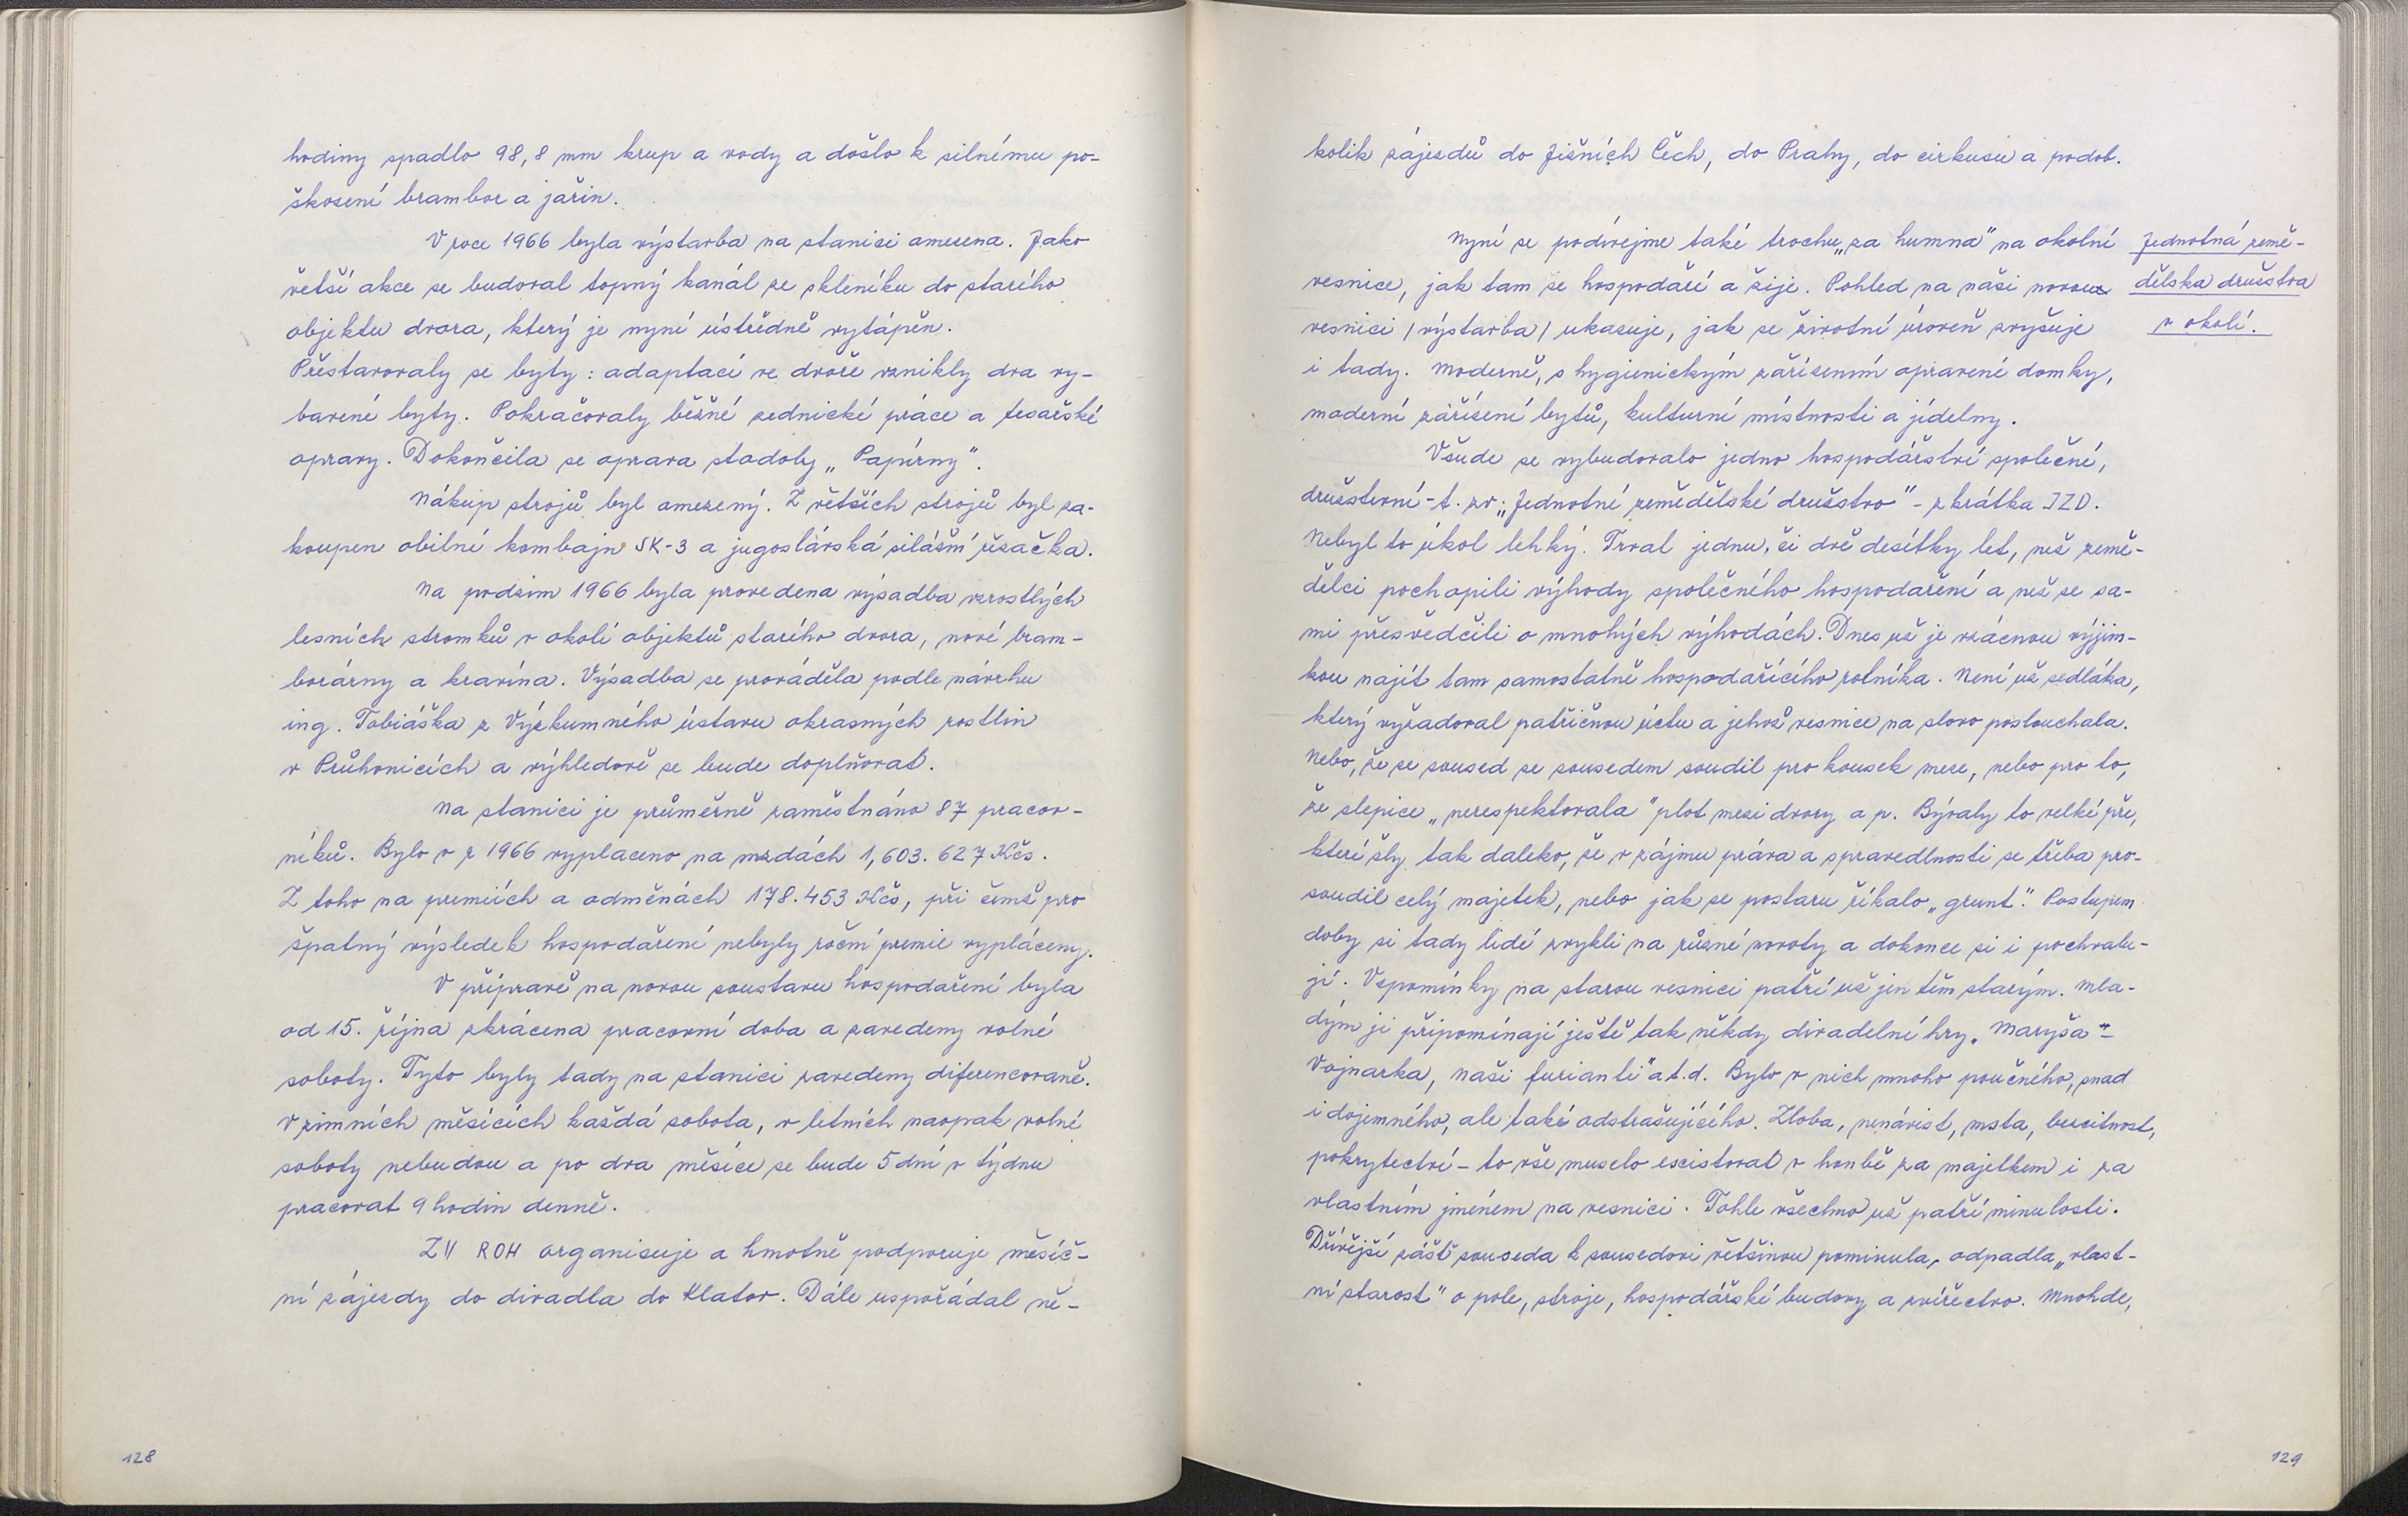 hodiny spadlo 98,8 mm krup a vody a došlo k silnému po-
škození brambor a jařin.
V roce 1966 byla výstavba na stanici omezena. Jako
větší akce se budoval topný kanál ze skleníku do starého
objektu dvora, který je nyní ústředně vytápěn.
Přestavovaly se byty: adaptací ve dvoře vznikly dva vy-
bavené byty. Pokračovaly běžné zednické práce a tesařské
opravy. Dokončila se oprava stodoly „Papírny".
Nákup strojů byl omezený. Z větších strojů byl za-
koupen obilní kombajn SK-3 a jugoslávská silážní řezačka.
Na podzim 1966 byla provedena výsadba vzrostlých
lesních stromků v okolí objektů starého dvora, nové bram-
borárny a kravína. Výsadba se prováděla podle návrhu
ing. Tobiáška z Výzkumného ústavu okrasných rostlin
v Průhonicích a výhledově se bude doplňovat.
Na stanici je průměrně zaměstnáno 87 pracov-
níků. Bylo v r 1966 vyplaceno na mzdách 1,603.627 Kčs.
Z toho na premiích a odměnách 178.453 Kčs, při čemž pro
špatný výsledek hospodaření nebyly roční premie vypláceny.
V přípravě na novou soustavu hospodaření byla
od 15. října zkrácena pracovní doba a zavedeny volné
soboty. Tyto byly tady na stanici zavedeny diferencovaně.
V zimních měsících každá sobota, v letních naopak volné
soboty nebudou a po dva měsíce se bude 5 dní v týdnu
pracovat 9 hodin denně.
ZV ROH organisuje a hmotně podporuje měsíč-
ní zájezdy do divadla do Klatov. Dále uspořádal ně-
128
kolik zájezdů do Jižních Čech, do Prahy, do cirkusu a podob.
Nyní se podívejme také trochu „za humna" na okolní
vesnice, jak tam se hospodaří a žije. Pohled na naši novou
vesnici /výstavba/ ukazuje, jak se životní úroveň zvyšuje
i tady. Moderně, s hygienickým zařízením opravené domky,
moderní zařízení bytů, kulturní místnosti a jídelny.
Jednotná země-
dělska družstva
v okolí.
Všude se vybudovalo jedno hospodářství společné,
družstevní - t. zv. „Jednotné zemědělské družstvo" - zkrátka JZD.
Nebyl to úkol lehký. Trval jednu, či dvě desítky let, než země-
dělci pochopili výhody společného hospodaření a než se sa-
mi přesvědčili o mnohých výhodách. Dnes už je vzácnou výjim-
kou najít tam samostatně hospodařícího rolníka. Není už sedláka,
který vyžadoval patřičnou úctu a jehož vesnice na slovo poslouchala.
Nebo, že se soused se sousedem soudil pro kousek meze, nebo pro to,
že slepice „nerespektovala" plot mezi dvory a p. Bývaly to velké pře,
které šly tak daleko, že v zájmu práva a spravedlnosti se třeba pro-
soudil celý majetek, nebo jak se postaru říkalo „grunt". Postupem
doby si tady lidé zvykli na různé novoty a dokonce si i pochvalu-
jí. Vzpomínky na starou vesnici patří už jen těm starým. Mla-
dým ji připomínají ještě tak někdy divadelní hry „Maryša" -
Vojnarka, naši furianti" a.t.d. Bylo v nich mnoho poučného, snad
i dojemného, ale také odstrašujícího. Zloba, nenávist, msta, bezcitnost,
pokrytectví - to vše muselo escistovat v honbě za majetkem i za
vlastním jménem na vesnici. Tohle všechno už patří minulosti.
Dřívější zášť souseda k sousedovi většinou pominula, odpadla „vlast-
ní starost" o pole, stroje, hospodářské budovy a zvířectvo. Mnohde,
129